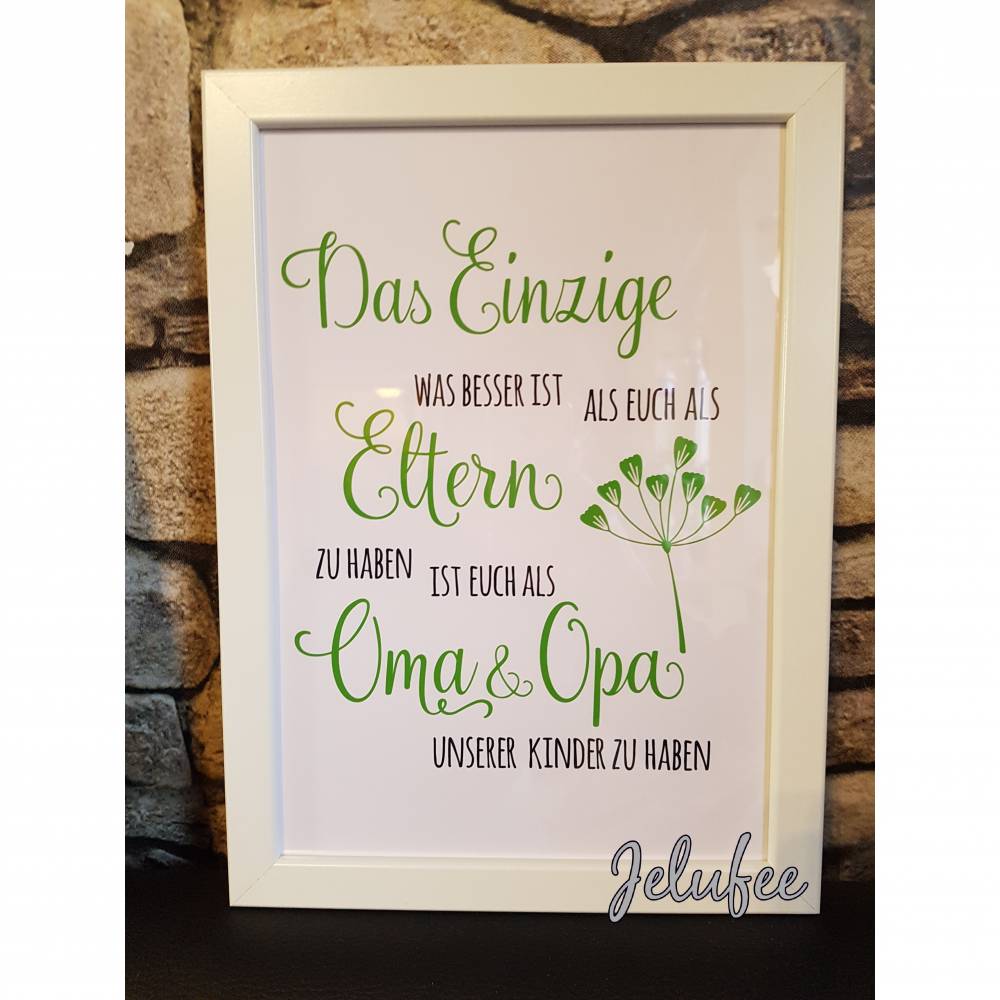 Das Einzige
WAS BESSER IST ALS EUCH ALS
Eltern
ZU HABEN IST EUCH ALS
Oma & Opa
UNSERER KINDER ZU HABEN
Jelufee